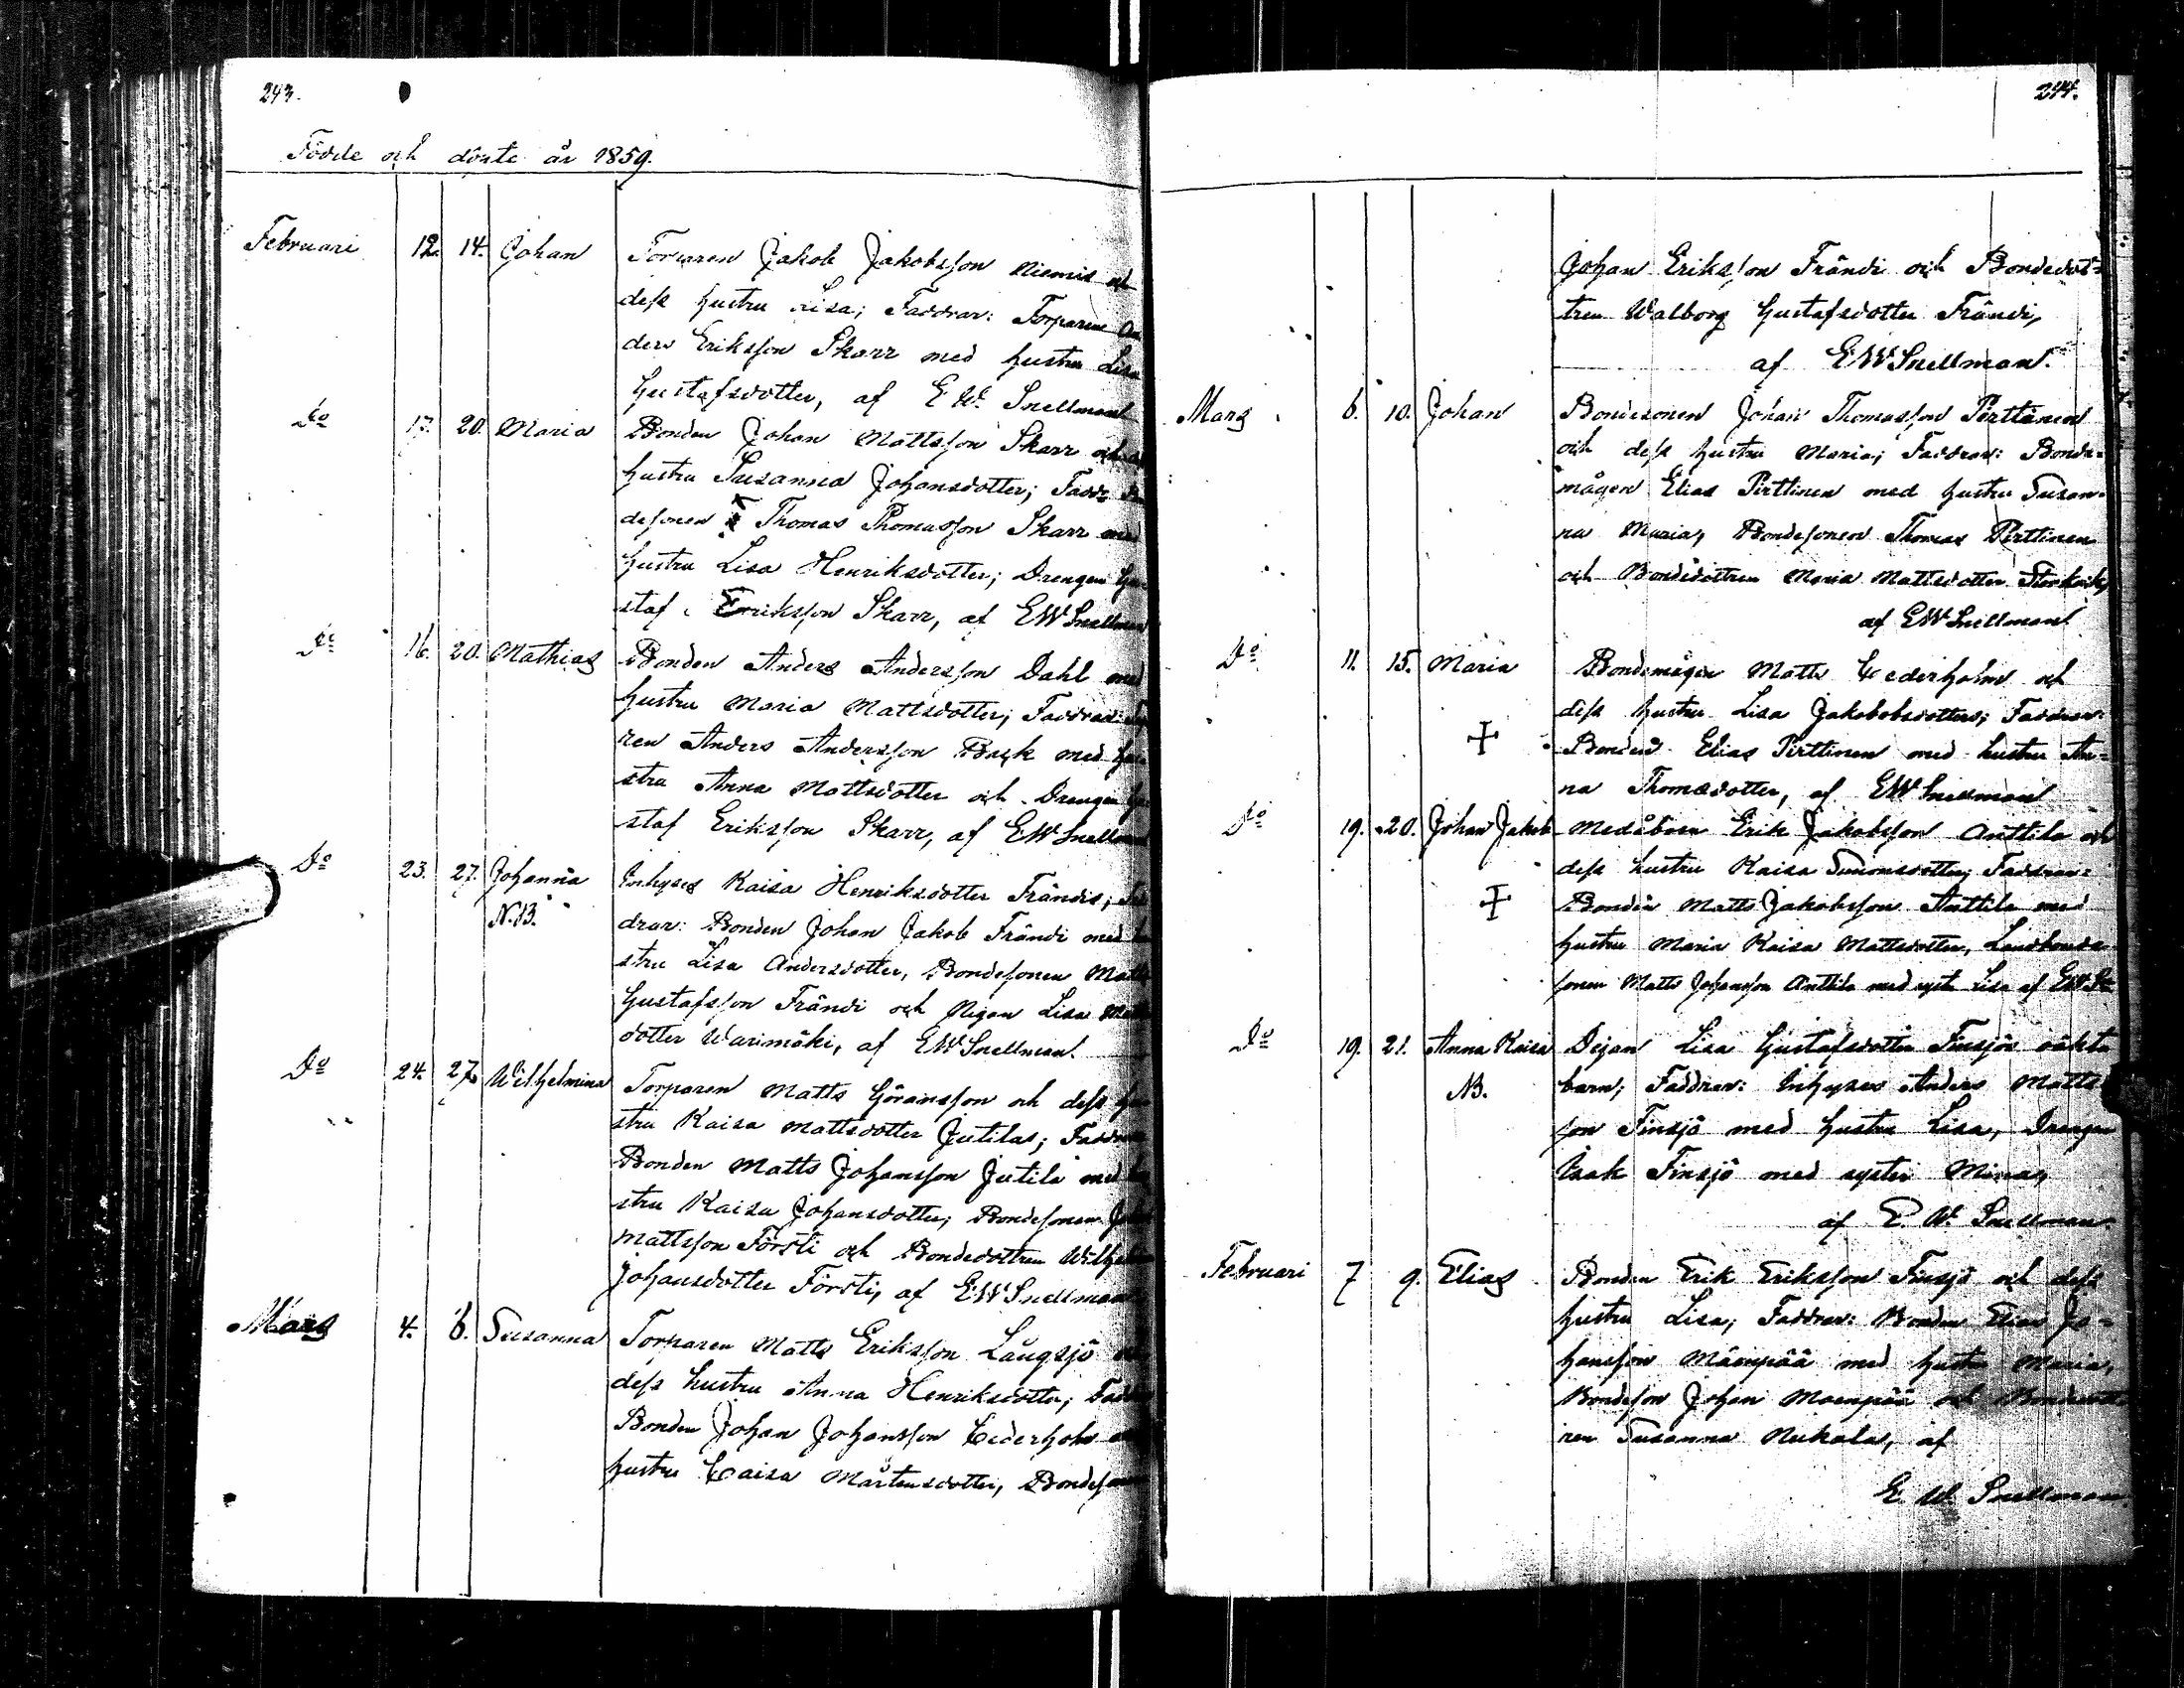 243.
Födde och döpte år 1859.
Februari 12. 14. Johan Torparen Jakob Jakobsson Niemis och
dess hustru Lisa; Faddrar: Torparene An
ders Eriksson Skarr med hustru Lisa
Gustafsdotter, af E W. Snellman
Do 17. 20. Maria Bonden Johan Mattsson Skarr och
hustru Susanna Johansdotter; Faddr
desonen Thomas Thomasson Skarr med
hustru Lisa Henriksdotter; Drengen Gu
staf Eriksson Skarr, af EW Snellman
Do 16. 20. Mathias Bonden Anders Andersson Dahl med
hustru Maria Mattsdotter; Faddrar:
ren Anders Andersson Back med hu
stru Anna Mattsdotter och Drengen Gu
staf Eriksson Skarr, af EW Snellman
Do 23. 27. Johanna Inhyses Kaisa Henriksdotter Frändis; Fad
N.B. drar: Bonden Johan Jakob Frändi med hu
stru Lisa Andersdotter, Bondesonen Matts
Gustafsson Frändi och Pigan Lisa Matts
dotter Warimäki, af EW Snellman.
Do 24. 27. Wilhelmina Torparen Matts Göransson och dess hu
stru Kaisa Mattsdotter Jutilas; Faddrar
Bonden Matts Johansson Jutila med hu
stru Kaisa Johansdotter; Bondesonen
Mattsson Försti och Bondedottren Wilhel
Johansdotter Försti, af EW Snellman
Mars 4. 6. Susanna Torparen Matts Eriksson Långsjö och
dess hustru Anna Henriksdotter; Faddr
Bonden Johan Johansson Cederholm
hustru Caisa Mårtensdotter, Bondesonen
244.
Johan Eriksson Frändi och Bondedot=
tren Walborg Gustafsdotter Frändi,
af EW Snellman.
Mars 6. 10. Johan Bondesonen Johan Thomasson Pirttinen
och dess hustru Maria; Faddrar: Bonde=
mågen Elias Pirttinen med hustru Susan=
na Maria, Bondesonen Thomas Pirttinen
och Bondedottren Maria Mattsdotter
af EW Snellman
Do 11. 15. Maria Bondemågen Matts Cederholm och
dess hustru Lisa Jakobsdotter; Faddrar:
Bonden Elias Pirttinen med hustru An=
na Thomasdotter, af EW Snellman
Do 19. 20. Johan Jakob Medåboen Erik Jakobsson Anttila och
dess hustru Kaisa Simonsdotter; Faddrar:
Bonden Matts Jakobsson Anttila med
hustru Maria Kaisa Mattsdotter, Landbonde
sonen Matts Johansson Anttila med syster Lisa af EW Sn
Do 19. 21. Anna Kaisa Dejan Lisa Gustafsdotter Finsjös oäkta
NB. barn; Faddrar: Inhyses Anders Matts
son Finsjö med hustru Lisa, Drengen
Isak Finsjö med syster Mina,
af E. W. Snellman.
Februari 7 9. Elias Bonden Erik Eriksson Finsjö och dess
hustru Lisa; Faddrar: Bonden Elias Jo=
hansson Mäenpää med hustru Maria,
Bondeson Johan Maenpää och Bondedott
ren Susanna Nukala, af
E. W. Snellman.